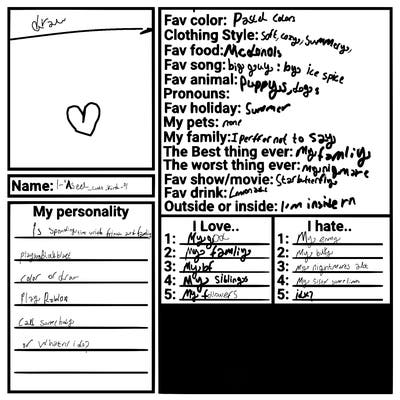 draw
Name:
My personality
Is spending time with friends and family
color or draw
Play Roblox
Call somebody
or
Fav color: Pastel colors
Clothing Style: Soft, cozy, Summery,
Fav food: Mcdonols
Fav song: big guys : by ice spice
Fav animal: Puppys, dogs
Pronouns:
Fav holiday: Summer
My pets: none
My family: I perfer not to say
The Best thing ever: My family
The worst thing ever: my nigmare
Fav show/movie: Star butterfly
Fav drink: Lemonade
Outside or inside: I am inside
I Love..
1: My god
2: My family
3: My bf
4: My siblings
5: My followers
I hate..
1: My enemy
2: My bully
3: My nightmares
4: My sister
5: idk?